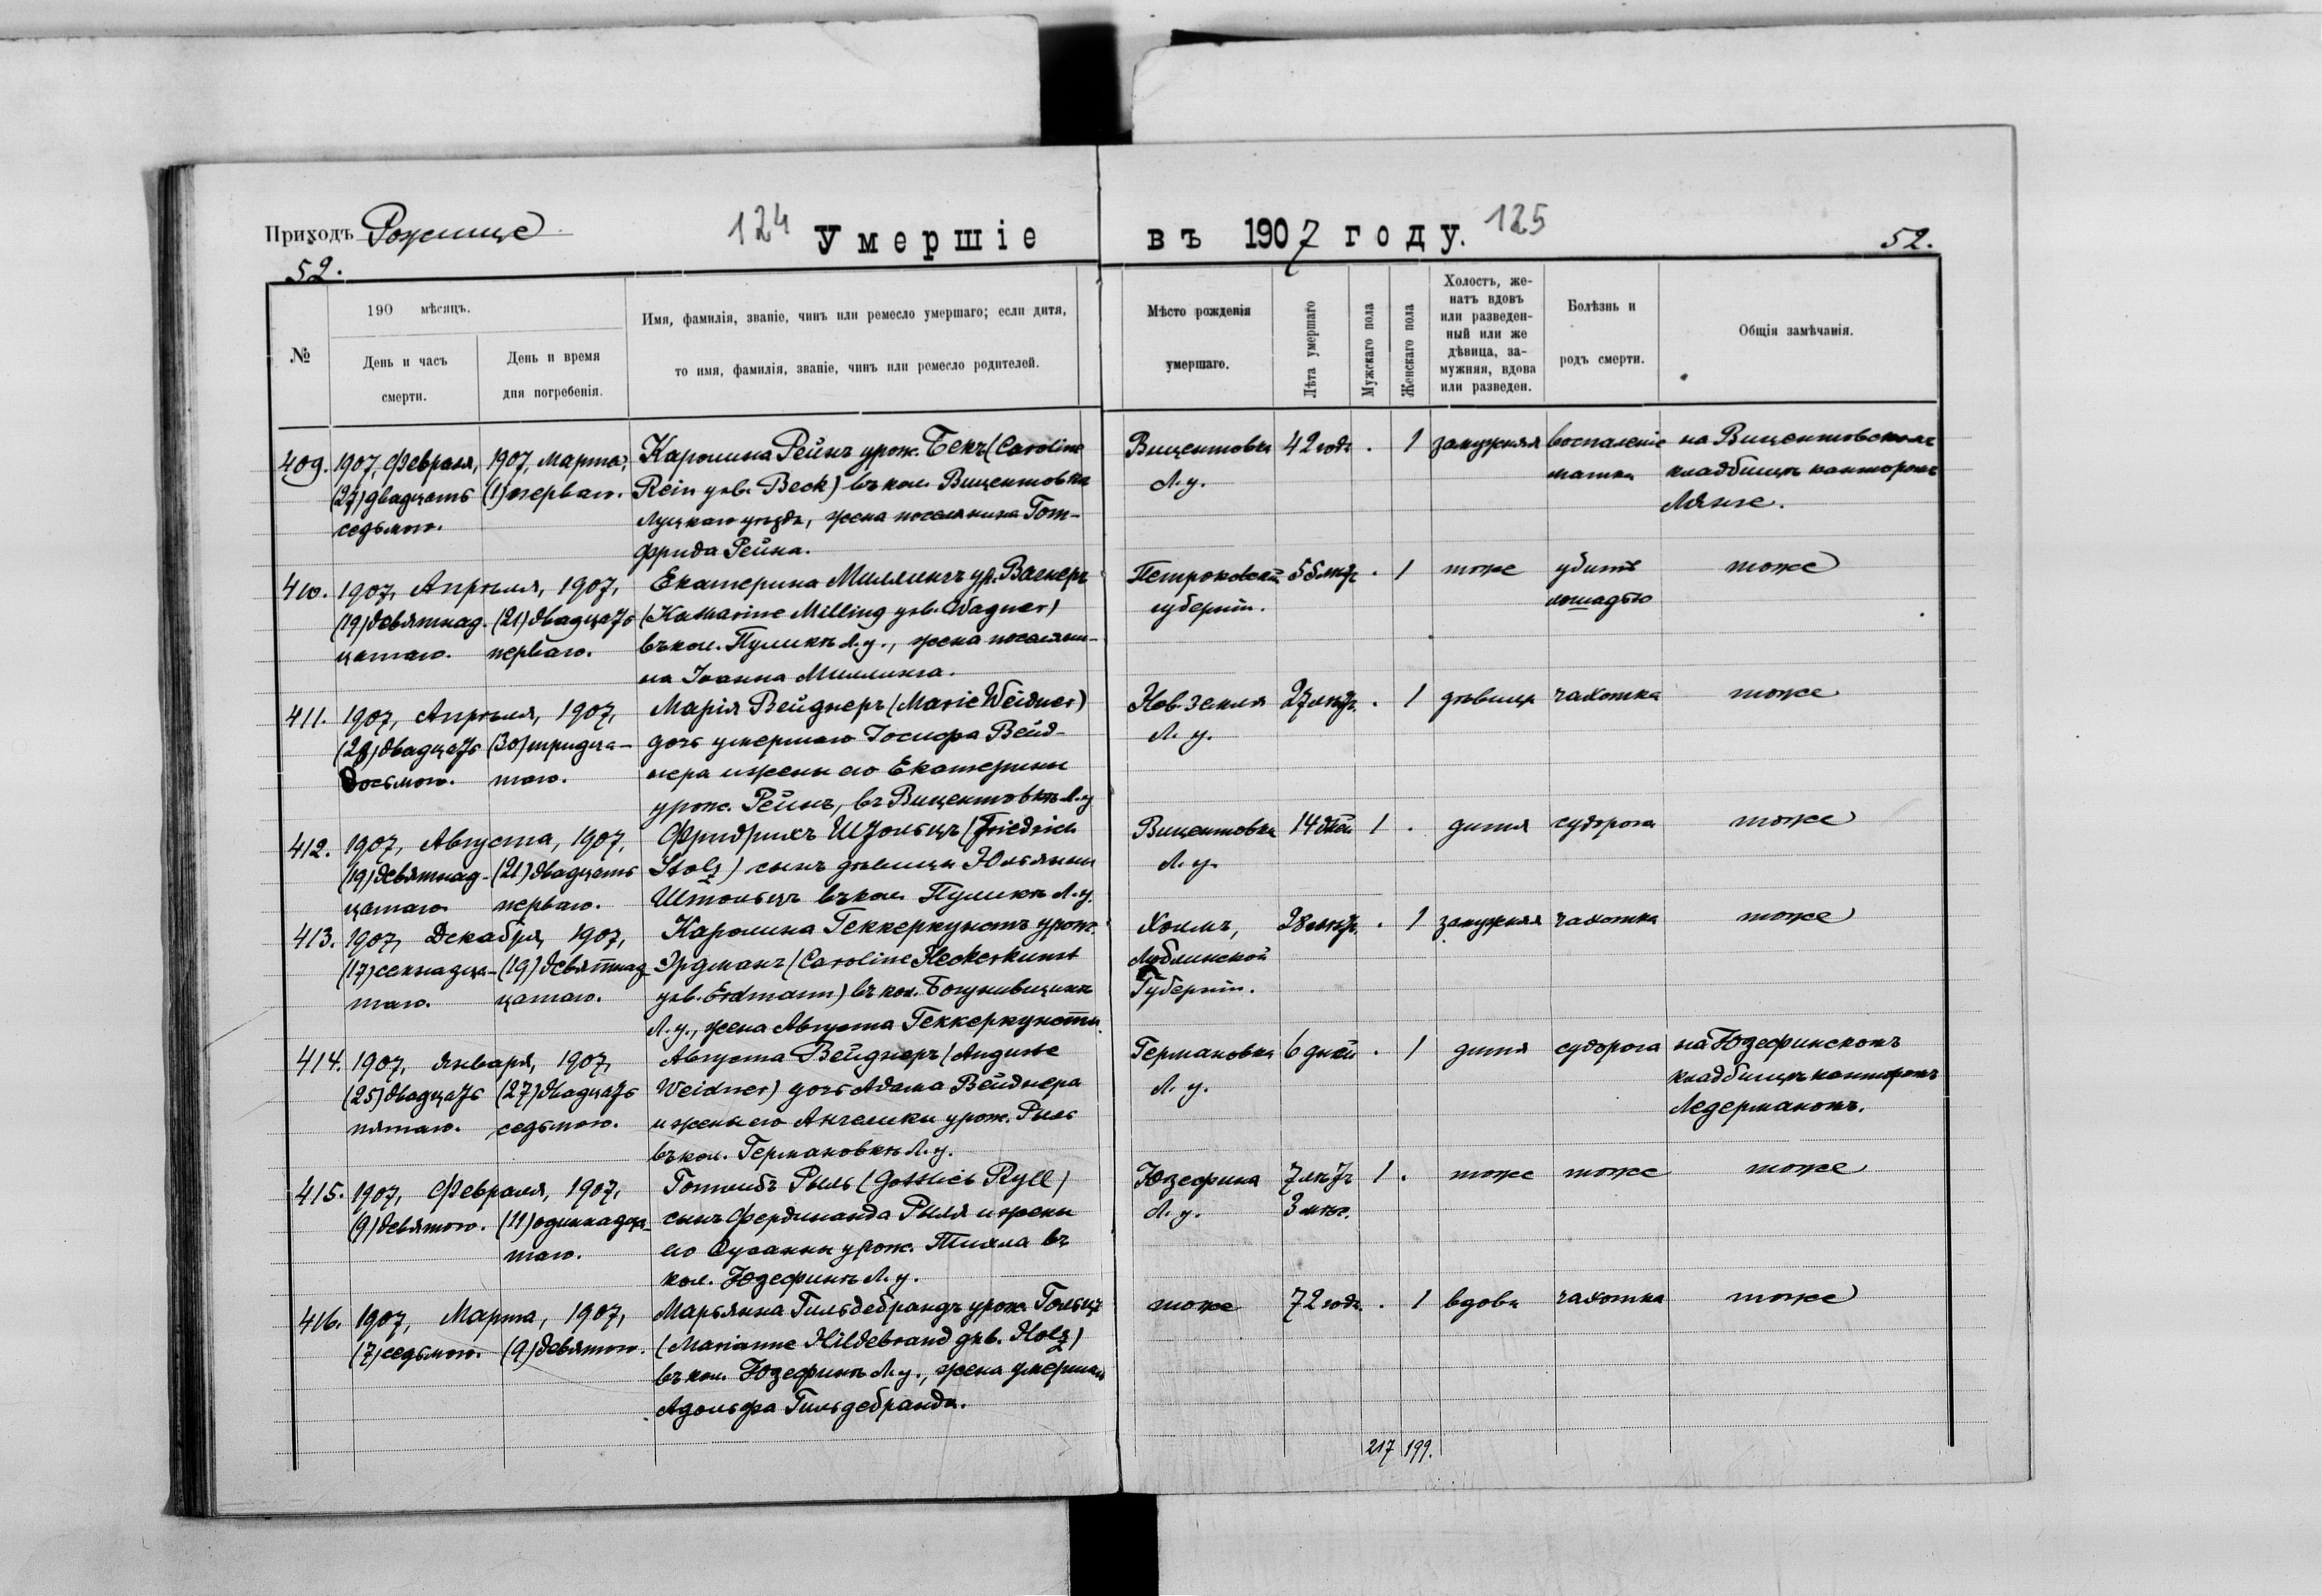 Приходъ Рожище
124 Умершіе
въ 1907 году. 125
52.
52.
№
190 мѣсяцъ.
День и часъ
смерти.
День и время
дня погребенія.
Имя, фамилія, званіе, чинъ или ремесло умершаго; если дитя,
то имя, фамилія, званіе, чинъ или ремесло родителей.
Мѣсто рожденія
умершаго.
Лѣта умершаго
Мужскаго пола
Женскаго пола
Холостъ, же-
натъ вдовъ
или разведен-
ный или же
дѣвица, за-
мужняя, вдова
или разведен.
Болѣзнь и
родъ смерти.
Общія замѣчанія.
409. 1907, Февраля, 1907, Марта, Каролина Рейнъ урож. Бекъ (Caroline Вицентовка 42 года . 1 замужняя воспаленіе на Вицентовскомъ
(27) двадцать (1) перваго. Rein geb. Beck) въ кол. Вицентовкѣ Л. у. матки кладбищѣ канторомъ
седьмого. Луцкаго уѣзда, жена поселянина Гот- Лянге.
фрида Рейна.
410. 1907, Апрѣля, 1907, Екатерина Миллингъ ур. Вагнеръ Петроковской 55 лѣтъ . 1 тоже убита тоже
(19) девятнад- (21) двадцать (Katharine Milling geb. Wagner) губерніи. лошадью
цатаго. перваго. въ кол. Пуликѣ Л. у., жена поселяни-
на Іоанна Миллинга.
411. 1907, Апрѣля, 1907, Марія Вейднеръ (Marie Weidner) Нов. Земля 27 лѣтъ . 1 дѣвица чахотка тоже
(28) двадцать (30) тридца- дочь умершаго Іосифа Вейд- Л. у.
восьмого. таго. нера и жены его Екатерины
урож. Рейнъ, въ Вицентовкѣ Л. у.
412. 1907, Августа, 1907, Фридрихъ Штольцъ (Friedrich Вицентовка 14 дней 1 . дитя судорога тоже
(19) девятнад- (21) двадцать Stolz) сынъ дѣвицы Юльянны Л. у.
цатаго перваго. Штольцъ въ кол. Пуликѣ Л. у.
413. 1907, Декабря, 1907, Каролина Геккеркунстъ урож. Холмъ, 28 лѣтъ . 1 замужняя чахотка тоже
(17) семнадца- (19) девятнад- Эрдманъ (Caroline Heckerkunst Люблинской
таго. цатаго. geb. Erdmann) въ кол. Губерніи.
Л. у., жена Августа Геккеркунста.
414. 1907, Января, 1907, Августа Вейднеръ (Auguste Германовка 6 дней . 1 дитя судорога на Юзефинскомъ
(25) двадцать (27) двадцать Weidner) дочь Адама Вейднера Л. у. кладбищѣ канторомъ
пятаго. седьмого. и жены его Ангелики урож. Рыль Ледерманомъ.
въ кол. Германовкѣ Л. у.
415. 1907, Февраля, 1907, Готлибъ Рыль (Gottlieb Ryll) Юзефина 7 лѣтъ 1 . тоже тоже тоже
(9) девятого. (11) одиннадца- сынъ Фердинанда Рыля и жены Л. у. 3 мѣс.
таго. его Сусанны урож. Тиала въ
кол. Юзефинѣ Л. у.
416. 1907, Марта, 1907, Марьянна Гильдебрандъ урож. Гольцъ тоже 72 года . 1 вдова чахотка тоже
(7) седьмого. (9) девятого. (Marianne Hildebrand geb. Holz)
въ кол. Юзефинѣ Л. у., жена умершаго
Адольфа Гильдебранда.
217 199.